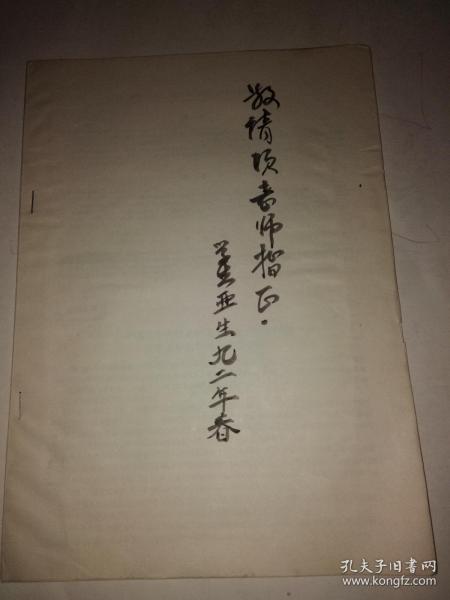 敬请项老师指正。
董亚生九二年春
孔夫子旧书网
www.kongfz.com